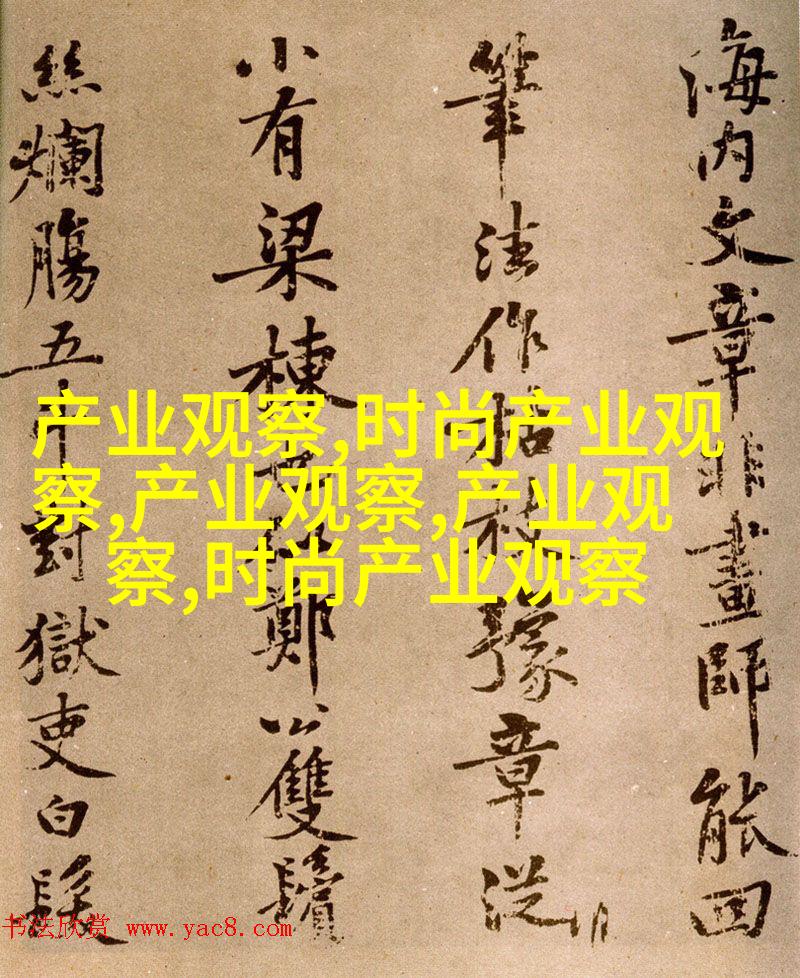 海内文章非畫師能回
筆法作枯枝豫章從
小有梁棟鄭公雙鬢
絲爛腸五斗對獄吏白髮
产业观察,时尚产业观
察,产业观察,产业观
察,时尚产业观察
书法欣赏 www.yac8.com